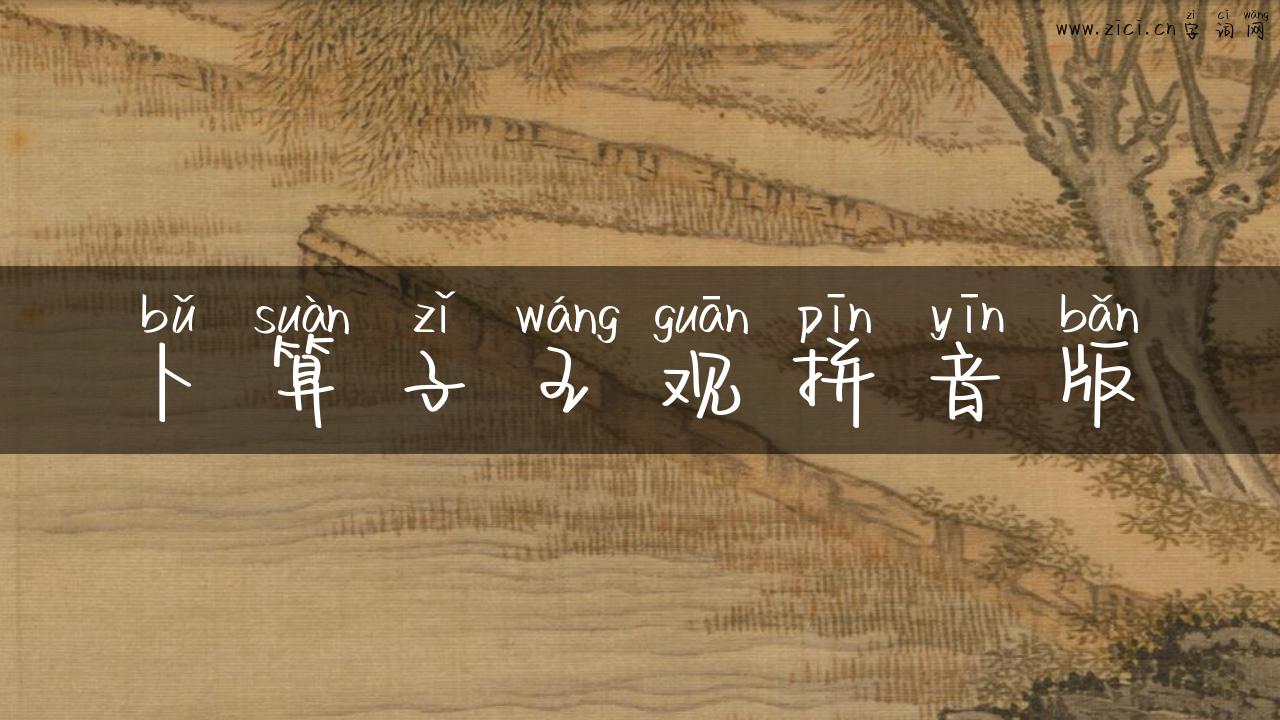 zì cí wǎng
www.zici.cn字词网
bǔ suàn zǐ wáng guān pīn yīn bǎn
卜算子王观拼音版